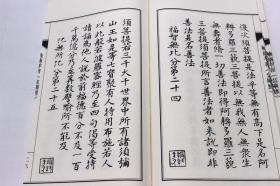 復次須菩提是法平等無有高下是名阿
耨多羅三藐三菩提以無我無人無眾生
無壽者修一切善法即得阿耨多羅三藐
三菩提須菩提所言善法者如來說即非
善法是名善法
福智無比分第二十四
須菩提若三千大千世界中所有諸須彌
山王如是等七寶聚有人持用布施若人
以此般若波羅蜜經乃至四句偈等受持
讀誦為他人說於前福德百分不及一百
千萬億分乃至算數譬喻所不能及
化無所化分第二十五